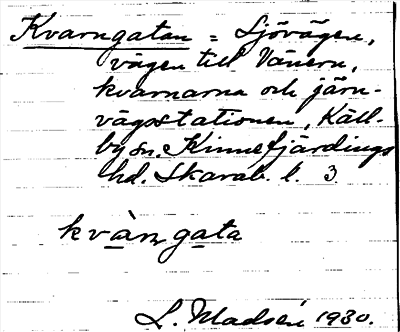 Kvarngatan = Sjövägen,
vägen till Vänern,
kvarnarna och järn-
vägsstationen, Käll-
by sn. Kinnefjärdings
hd. Skarab. l. 3
kvàŋgata
L. Madsén 1930.